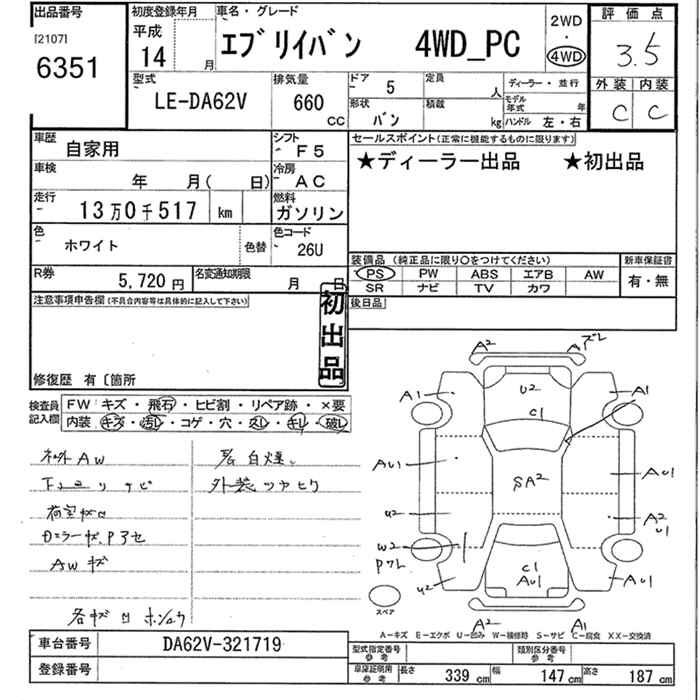 出品番号
[2107]
6351
初度登録年月
平成
14 月
車名・グレード
エブリイバン 4WD_PC
2WD
・
4WD
評価点
3.5
外装 内装
C C
型式
LE-DA62V
排気量
660 CC
ドア 5
定員 人
形状 バン
積載 kg
ディーラー・並行
モデル年式 年
ハンドル 左・右
車歴 自家用
シフト F5
車検 年 月( 日)
冷房 AC
走行 13万0千517 km
燃料 ガソリン
色 ホワイト
色替
色コード 26U
R券 5,720円
名変通知期限 月 日
セールスポイント(正常に機能するものに限ります)
★ディーラー出品 ★初出品
装備品 (純正品に限り○をつけてください)
新車保証書
PS PW ABS エアB AW
SR ナビ TV カワ
有・無
後日品
注意事項申告欄(不具合内容等は具体的に記入して下さい)
初出品
修復歴 有〔箇所
検査員記入欄
FW キズ・飛石・ヒビ割・リペア跡・×要
内装 キズ・汚レ・コゲ・穴・欠レ・キレ・破レ
社外AW
下回リサビ
荷室ガロ
Dミラーガ、P3セ
AWガ
各ガロ
白煙
外装ツヤヒケ
A2 A1 ズレ
A1 U2 A1
C1
AU1 SA2 AU1
U2 A2 U1
W2 C1
P7L AU1
U2 AU1
A2 A1
スペア
A－キズ E－エクボ U－凹み W－補修跡 S－サビ C－腐食 XX－交換済
車台番号 DA62V-321719
登録番号
型式指定番号 参考
類別区分番号 参考
車庫証明用 参考
長さ 339 cm 幅 147 cm 高さ 187 cm